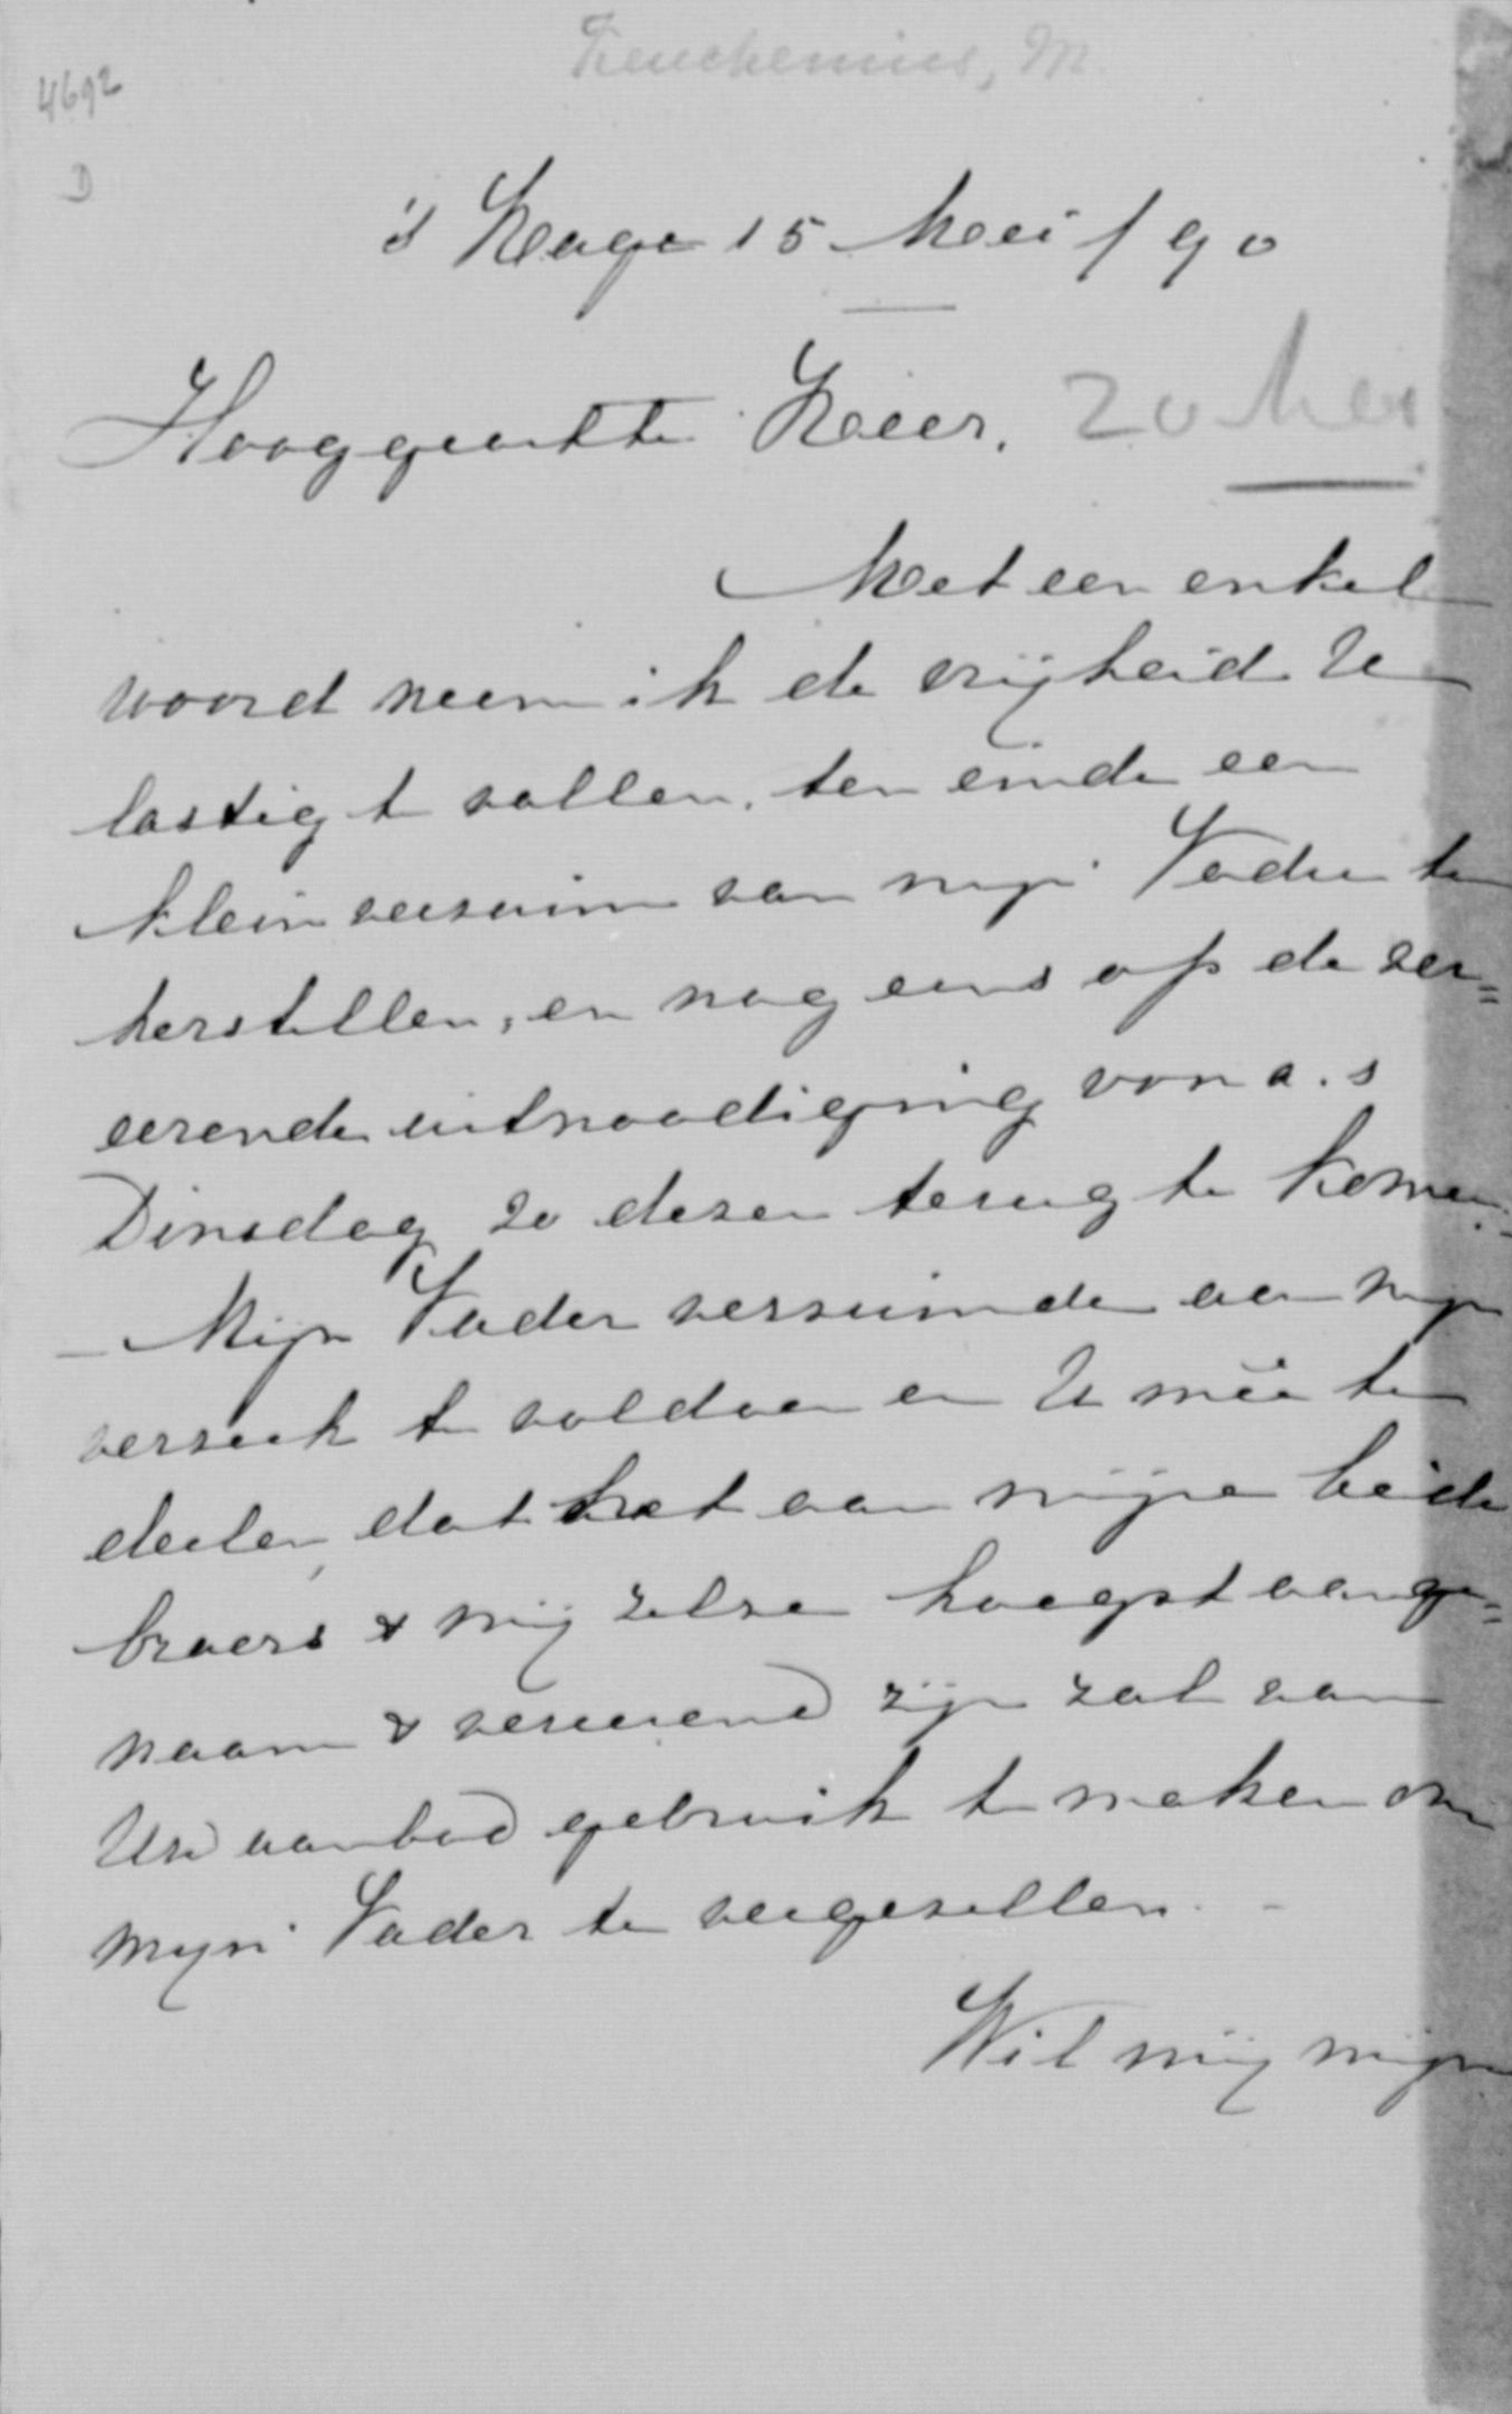 Keuchenius, M.
4692
D
's Hage 15 Mei / 90
Hooggeachte Heer,
20 Mei
Met een enkel
woord neem ik de vrijheid U
lastig te vallen, ten einde een
klein verzuim van mijn Vader te
herstellen, en nog eens op de ver=
eerende uitnoodiging van a.s
Dinsdag 20 dezer terug te komen.
– Mijn Vader verzuimde aan mijn
verzoek te voldoen en U mêe te
deelen, dat het aan mijne beide
broers & mij zelve hoogst aange=
naam & vereerend zijn zal van
Uw aanbod gebruik te maken om
mijn Vader te vergezellen. –
Wil mij mijn